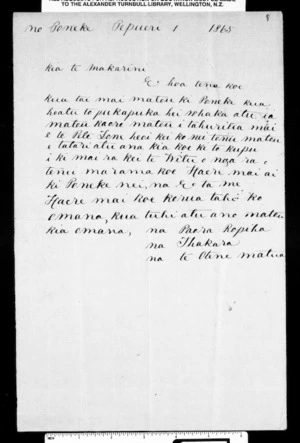 TO THE ALEXANDER TURNBULL LIBRARY, WELLINGTON, N.Z.
no Poneke Pepueri 1 1865
kia te Makarini
E hoa tena koe
kua tae mai matou ki Poneke kua
hoatu to pukapuka hei whaka atu ia
matou kaore matou i tahuritia mai
e te Pete Tom heoi kei konei tonu matou
e tatari atu ana kia koe ko te kupu
i ki mai ra kei te Witu o nga ra o
tenei marama koe Haere mai ai
ki Poneke nei, na E ta me
Haere mai koe korua tahi ko
Omana, kua tuhi atu ano matou
kia Omana, na Paora Ropiha
na Ihakara
na te Otene matua